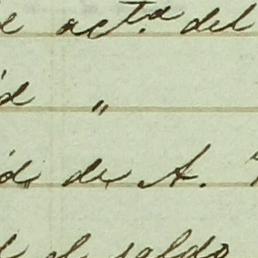 e acta del
id "
id. de A.
el saldo